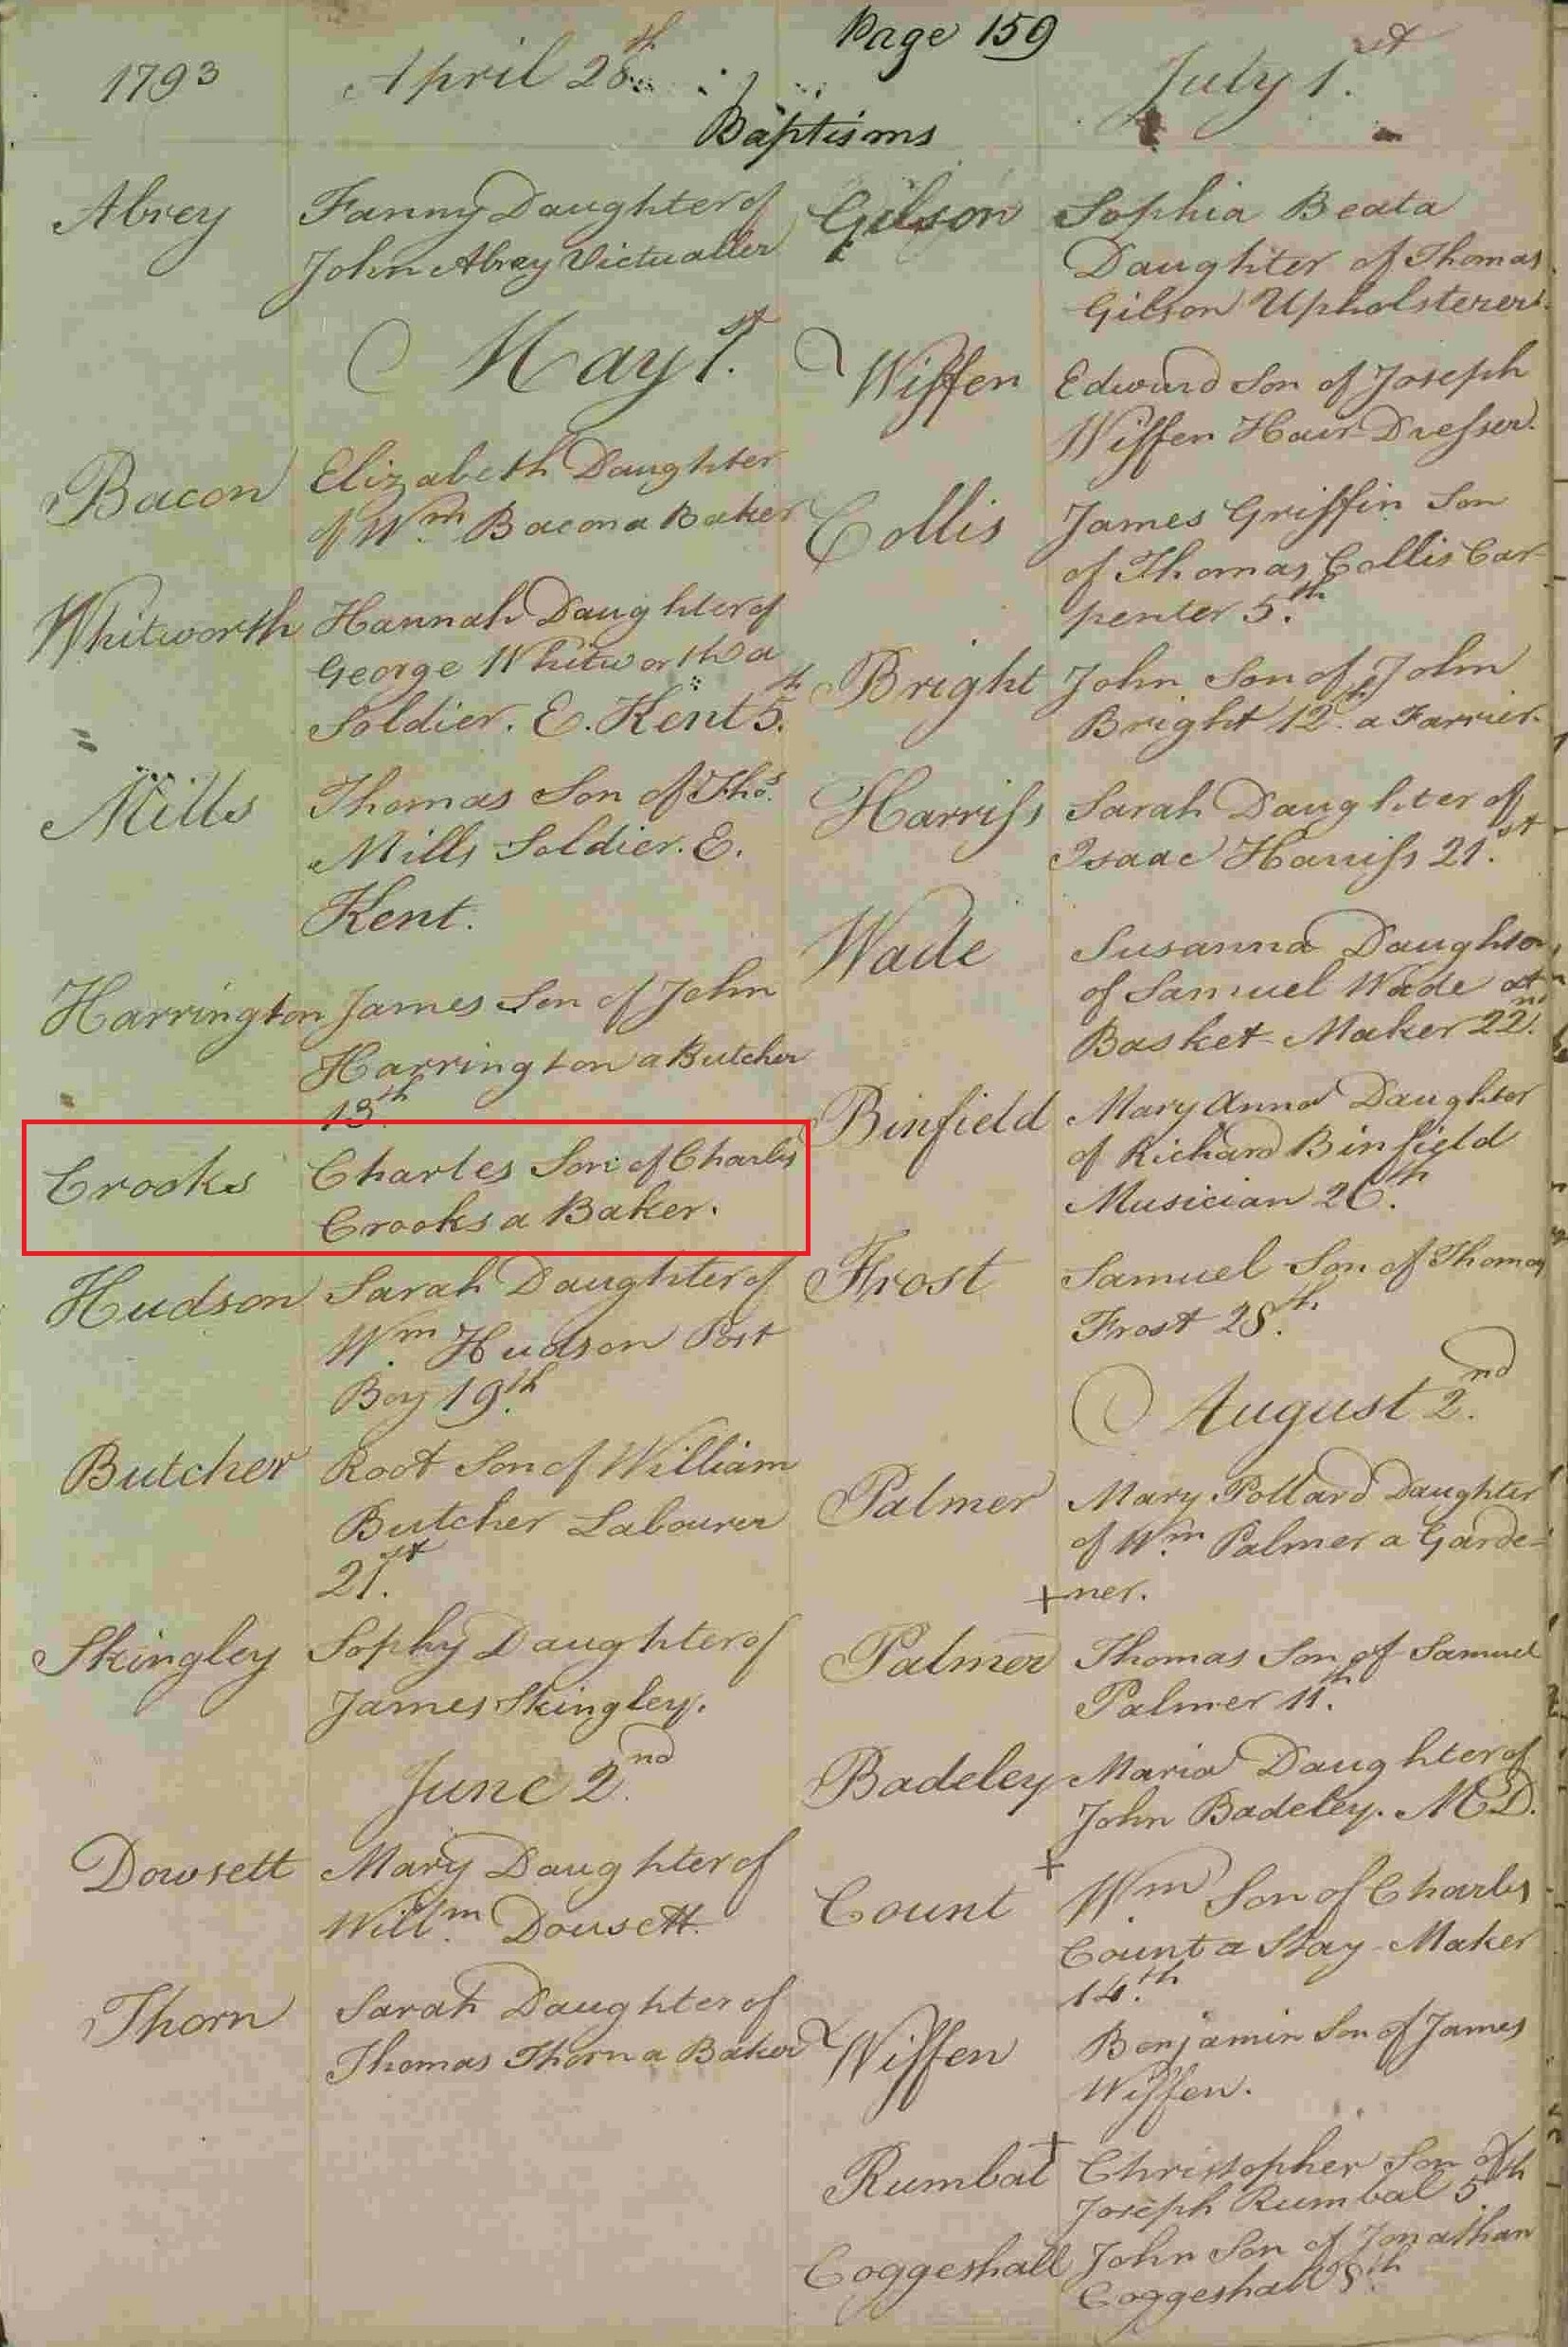 Page 159
1793 April 28th July 1st
Baptisms
Abrey Fanny Daughter of
John Abrey Victualler
May 1st
Bacon Elizabeth Daughter
of Wm Bacon a Baker
Whitworth Hannah Daughter of
George Whitworth a
Soldier. E. Kent 5th.
Mills Thomas Son of Thos.
Mills Soldier. E.
Kent.
Harrington James Son of John
Harrington a Butcher
13th.
Crooks Charles Son of Charles
Crooks a Baker.
Hudson Sarah Daughter of
Wm Hudson Post
Boy 19th.
Butcher Root Son of William
Butcher Labourer
21st.
Skingley Sophy Daughter of
James Skingley.
June 2nd.
Dowsett Mary Daughter of
Willm Dowsett.
Thorn Sarah Daughter of
Thomas Thorn a Baker
Gilson Sophia Beata
Daughter of Thomas
Gilson Upholsterer.
Wiffen Edward Son of Joseph
Wiffen Hair Dresser.
Collis James Griffin Son
of Thomas Collis Car-
penter 5th.
Bright John Son of John
Bright 12th. a Farrier.
Harriss Sarah Daughter of
Isaac Harriss 21st.
Wade Susanna Daughter
of Samuel Wade a
Basket Maker 22nd.
Binfield Mary Anna Daughter
of Richard Binfield
Musician 26th.
Frost Samuel Son of Thomas
Frost 28th.
August 2nd.
Palmer Mary Pollard Daughter
of Wm Palmer a Garde-
+ner.
Palmer Thomas Son of Samuel
Palmer 11th.
Badeley Maria Daughter of
John Badeley. M.D.
+
Count Wm Son of Charles
Count a Stay-Maker
14th.
Wiffen Benjamin Son of James
Wiffen.
+
Rumbal Christopher Son of
Joseph Rumbal 5th
Coggeshall John Son of Jonathan
Coggeshall 8th